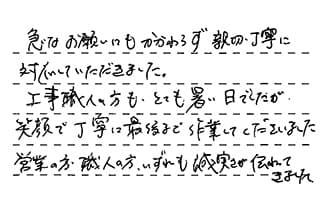 急なお願いにもかかわらず親切・丁寧に
対応していただきました。
工事職人の方も、とても暑い日でしたが、
笑顔で丁寧に最後まで作業してくださいました
営業の方・職人の方、いずれも誠実さが伝わって
きました